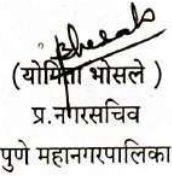 (योगिता भोसले )
प्र.नगरसचिव
पुणे महानगरपालिका